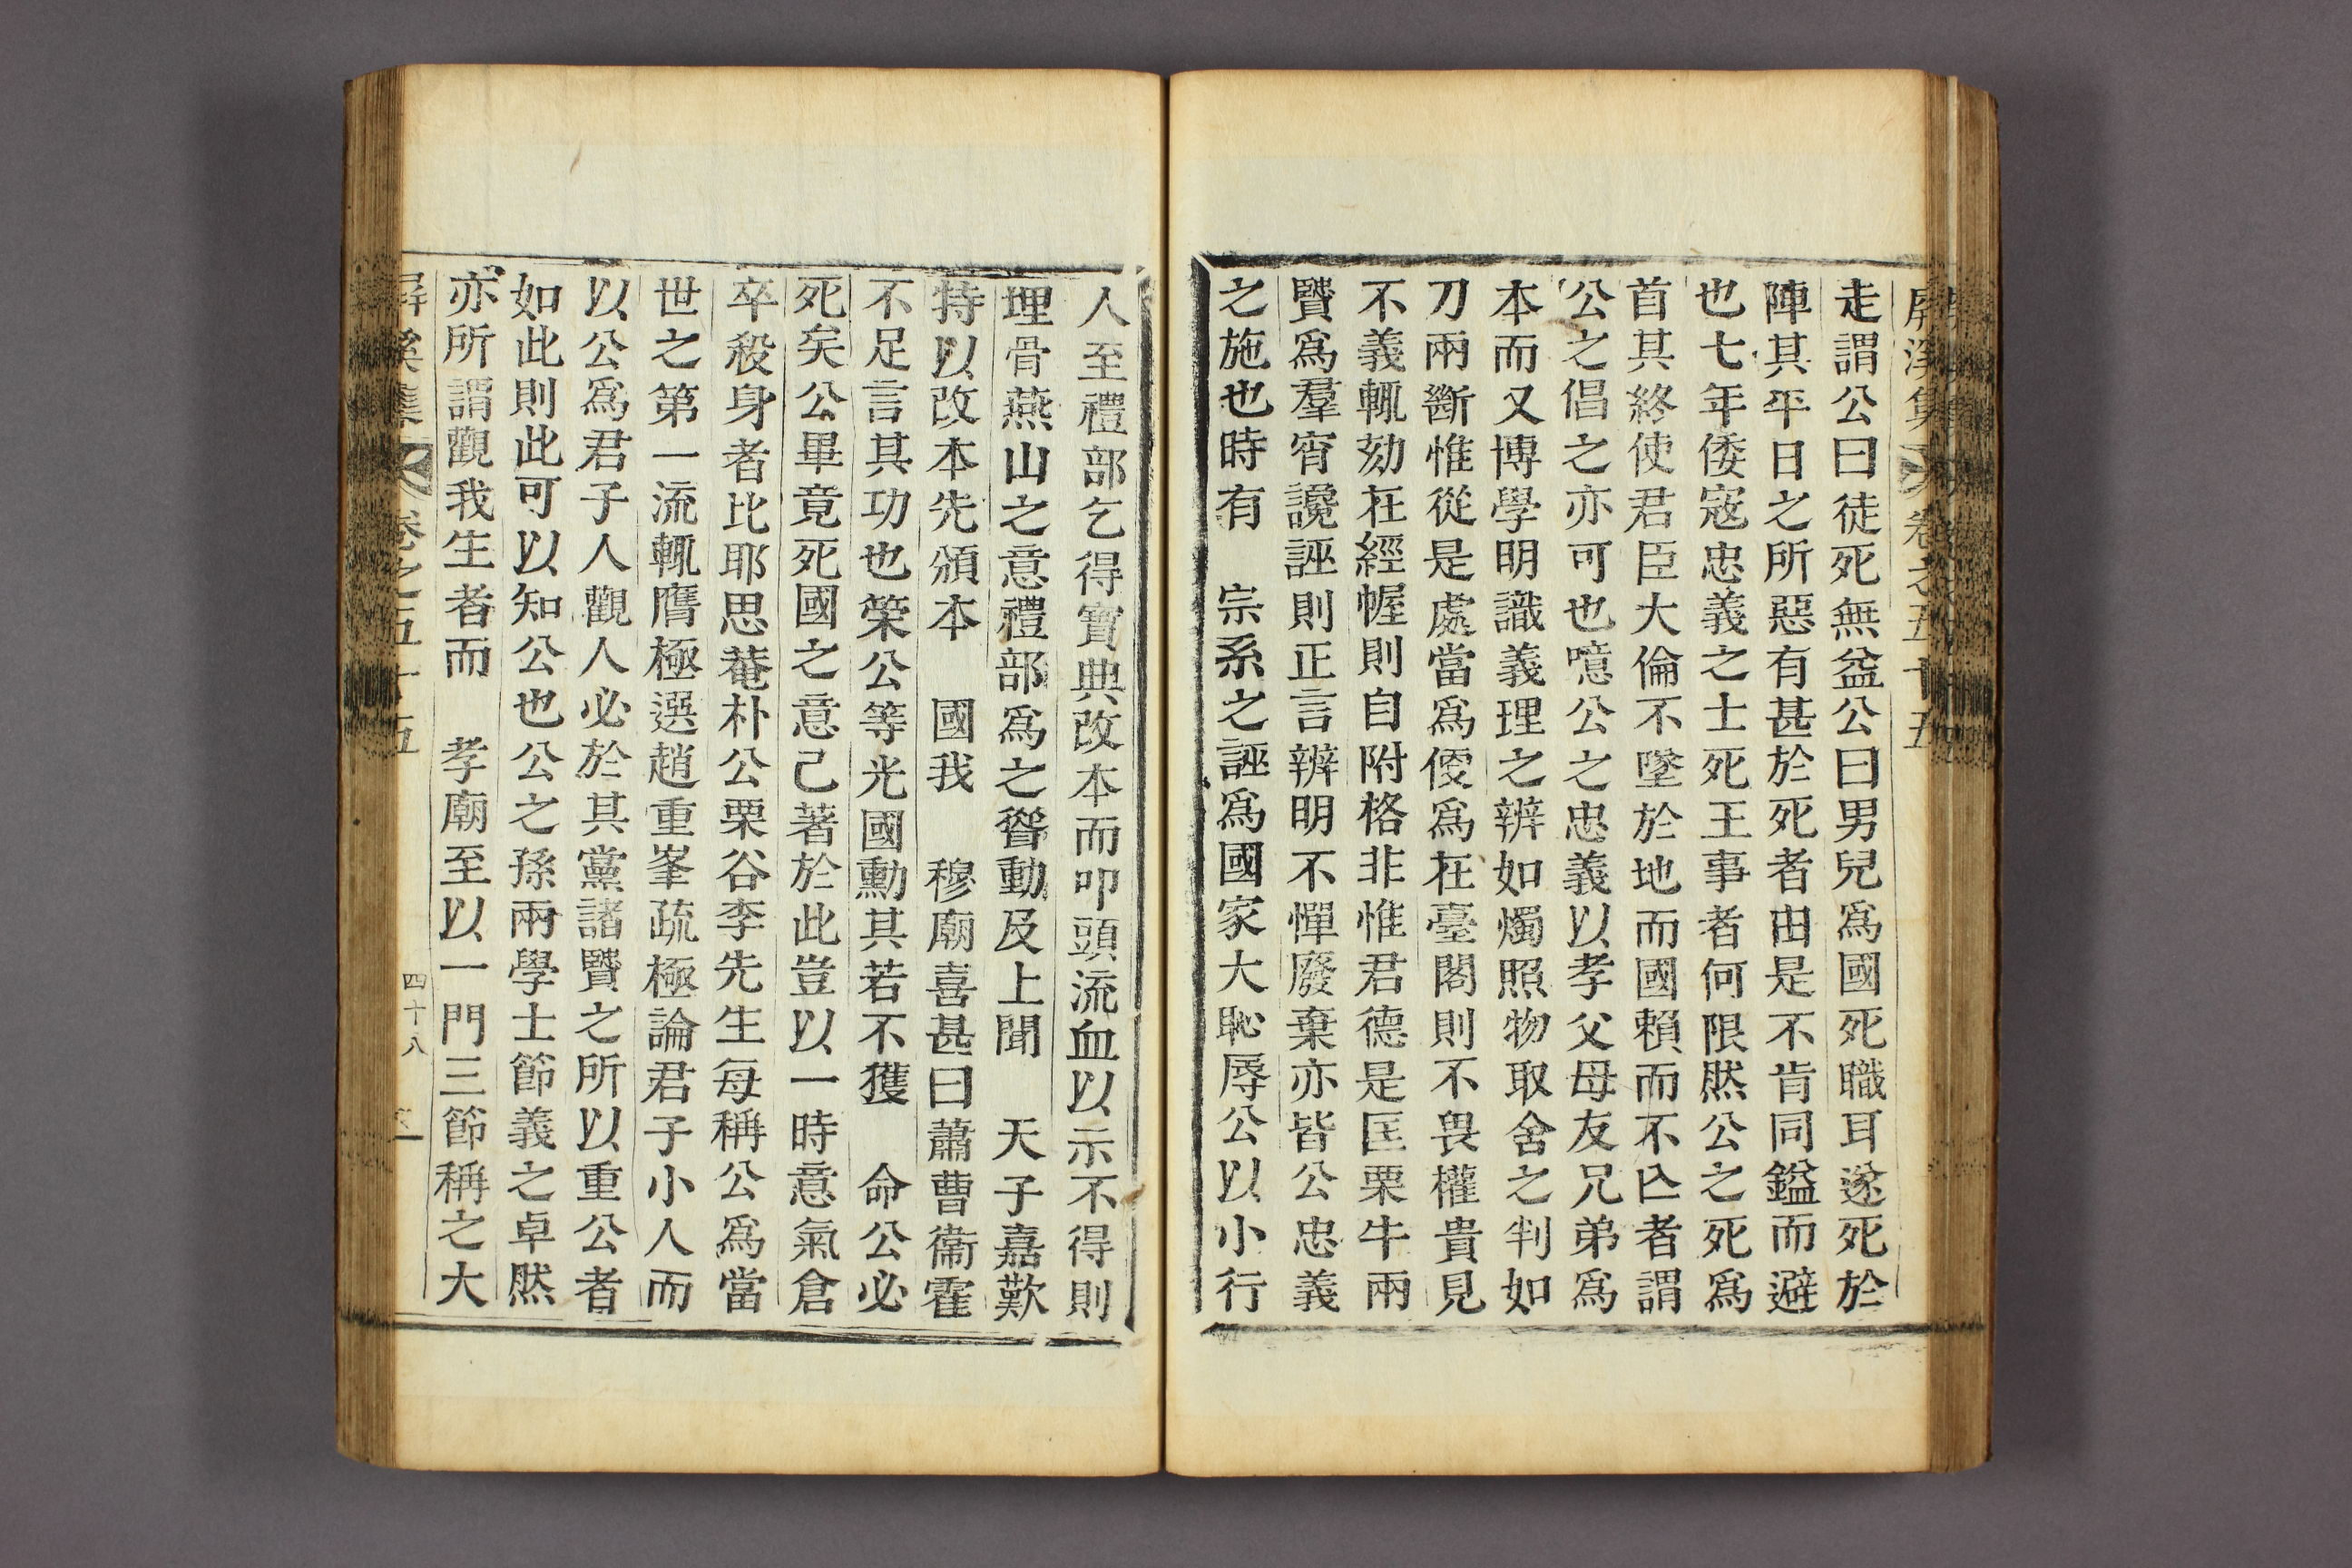 屛溪集 卷之五十五
走謂公曰徒死無益公曰男兒爲國死職耳遂死於
陣其平日之所惡有甚於死者由是不肯同鎰而避
也七年倭寇忠義之士死王事者何限然公之死爲
首其終使君臣大倫不墜於地而國賴而不亾者謂
公之倡之亦可也噫公之忠義以孝父母友兄弟爲
本而又博學明識義理之辨如燭照物取舍之判如
刀兩斷惟從是處當爲便爲在臺閣則不畏權貴見
不義輒劾在經幄則自附格非惟君德是匡栗牛兩
賢爲羣宵讒誣則正言辨明不憚廢棄亦皆公忠義
之施也時有 宗系之誣爲國家大恥辱公以小行
人至禮部乞得寶典改本而叩頭流血以示不得則
埋骨燕山之意禮部爲之聳動及上聞 天子嘉歎
特以改本先頒本 國我 穆廟喜甚曰蕭曹衞霍
不足言其功也策公等光國勳其若不獲 命公必
死矣公畢竟死國之意已著於此豈以一時意氣倉
卒殺身者比耶思菴朴公栗谷李先生每稱公爲當
世之第一流輒膺極選趙重峯疏極論君子小人而
以公爲君子人觀人必於其黨諸賢之所以重公者
如此則此可以知公也公之孫兩學士節義之卓然
亦所謂觀我生者而 孝廟至以一門三節稱之大
屛溪集 卷之五十五 四十八